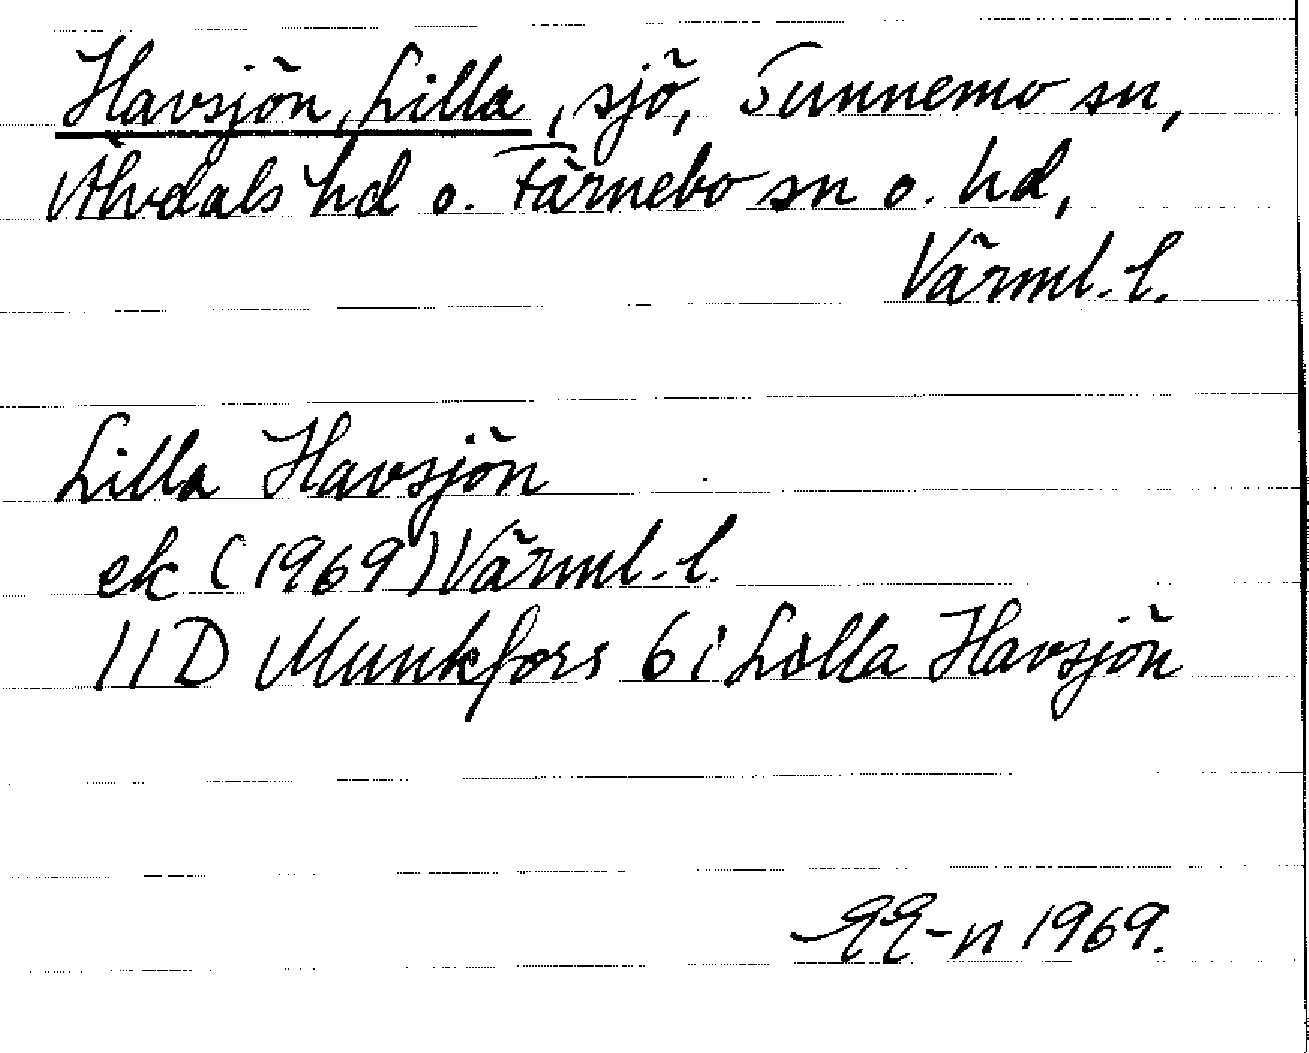 Havsjön, Lilla, sjö, Sunnemo sn,
Älvdals hd o. Färnebo sn o. hd,
Värml. l.
Lilla Havsjön
ek (1969) Värml. l.
11D Munkfors 6 i Lilla Havsjön
EE-n 1969.